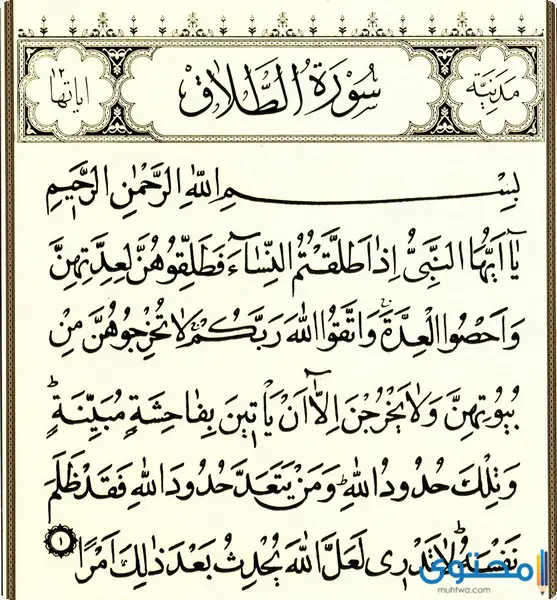 مَدَنِيَّة سُورَةُ الطَّلَاقِ اياتها ١٢
بِسْمِ اللّٰهِ الرَّحْمٰنِ الرَّحٖيمِ
يَٓا اَيُّهَا النَّبِىُّ اِذَا طَلَّقْتُمُ النِّسَٓاءَ فَطَلِّقُوهُنَّ لِعِدَّتِهِنَّ
وَاَحْصُوا الْعِدَّةَۚ وَاتَّقُوا اللّٰهَ رَبَّكُمْۚ لَا تُخْرِجُوهُنَّ مِنْ
بُيُوتِهِنَّ وَلَا يَخْرُجْنَ اِلَّٓا اَنْ يَأْتٖينَ بِفَاحِشَةٍ مُبَيِّنَةٍؕ
وَتِلْكَ حُدُودُ اللّٰهِؕ وَمَنْ يَتَعَدَّ حُدُودَ اللّٰهِ فَقَدْ ظَلَمَ
نَفْسَهُؕ لَا تَدْرٖى لَعَلَّ اللّٰهَ يُحْدِثُ بَعْدَ ذٰلِكَ اَمْرًا ١
محتوى
muhtwa.com